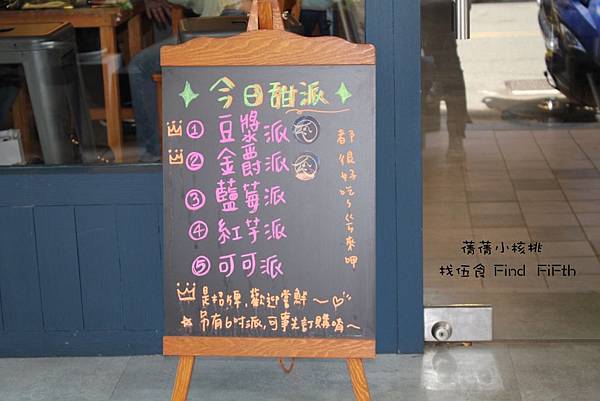 今日甜派
① 豆漿派
② 金爵派
③ 藍莓派
④ 紅芋派
⑤ 可可派
都很好吃ㄅㄟ來呷
是招牌，歡迎嘗鮮～
另有6吋派，可事先訂購唷～
蒨蒨小核桃
找伍食 Find FiFth